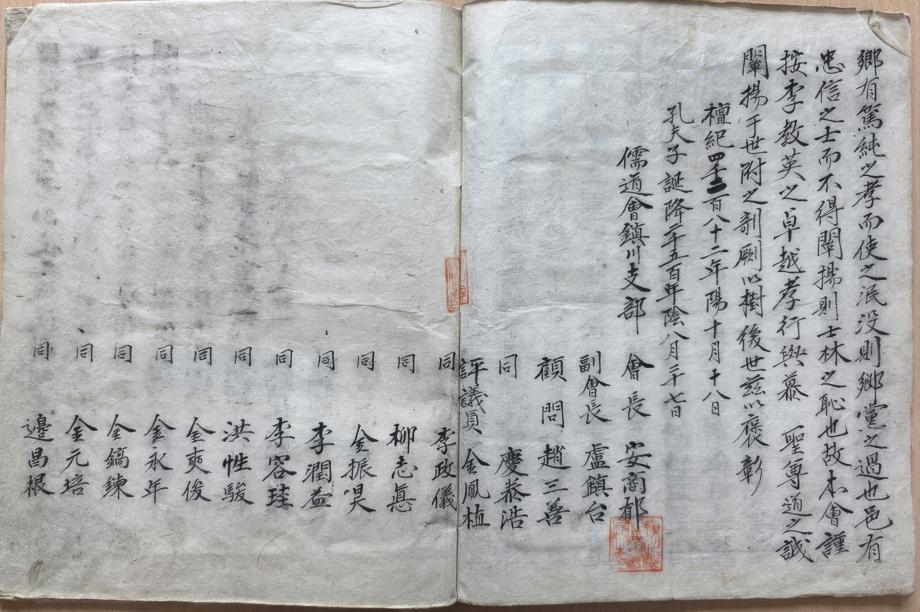 鄕有篤純之孝而使之泯没則鄕黨之過也邑有
忠信之士而不得闡揚則士林之恥也故本會謹
按李敎英之卓越孝行與慕 聖尊道之誠
闡揚于世附之剞劂以樹後世玆以襃彰
檀紀四千二百八十二年陽十月十八日
孔夫子誕降二千五百年陰八月二十七日
儒道會鎭川支部 會長 安商郁
副會長 盧鎭台
顧問 趙三善
同 慶泰浩
評議員 金鳳植
同 李政儀
同 柳志悳
同 金振昊
同 李潤益
同 李容珪
同 洪性駿
同 金奭俊
同 金永年
同 金鎬鍊
同 金元培
同 邊昌根